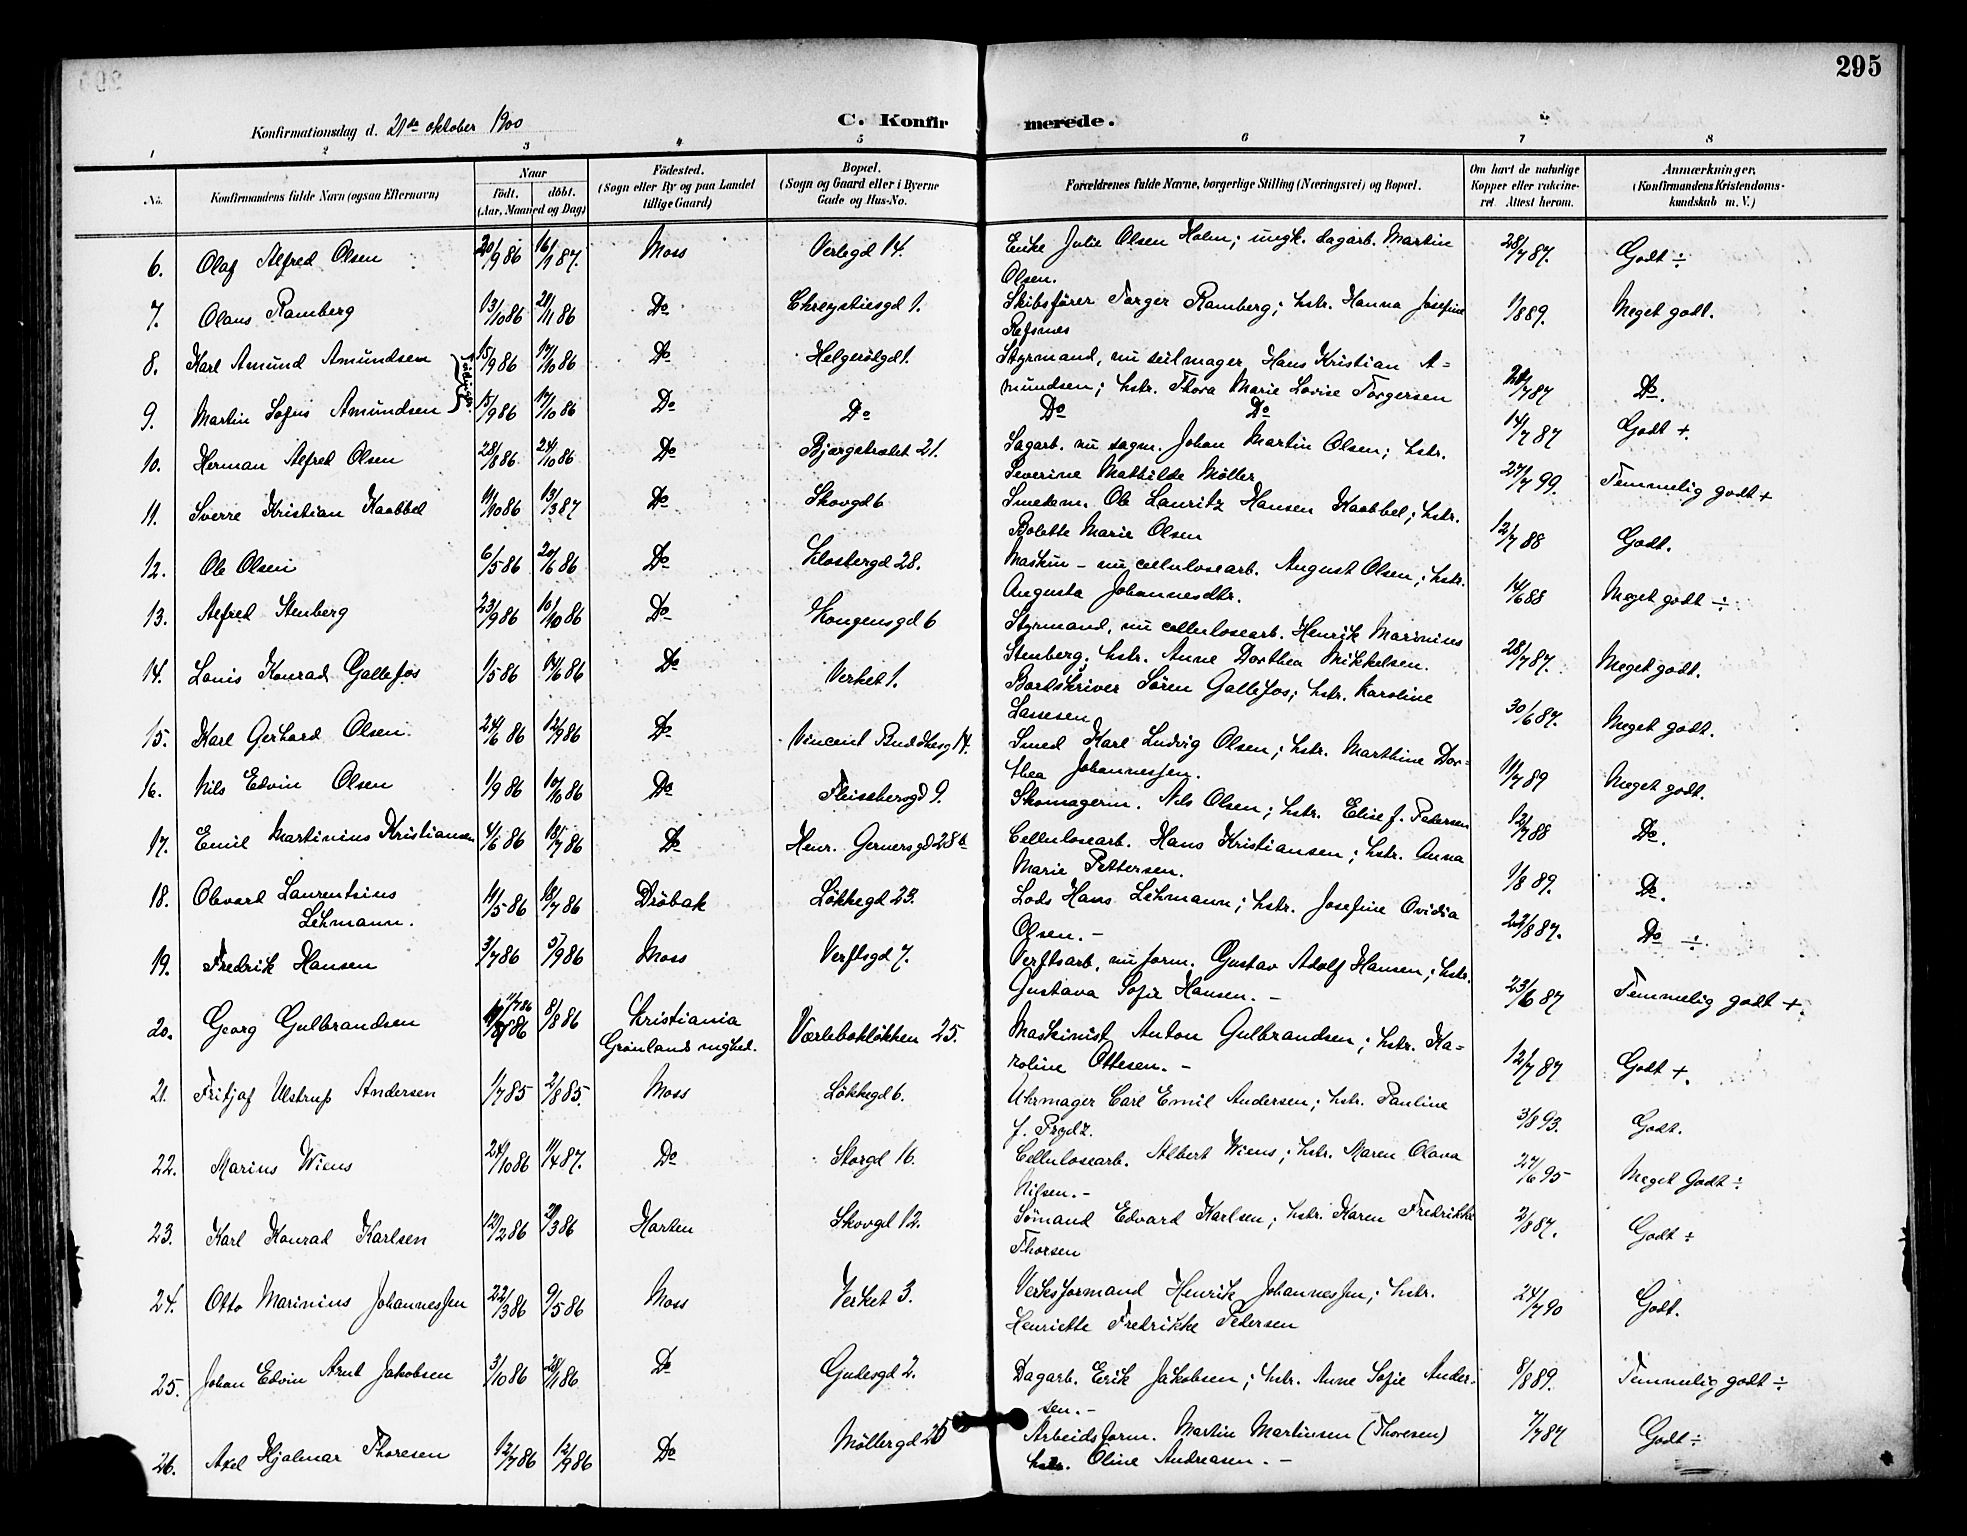 295
Konfirmationsdag d. 21de oktober 1900
C. Konfirmerede.
1 2 3 4 5 6 7 8
No.
Konfirmandens fulde Navn (ogsaa Efternavn)
Naar
födt. döbt.
(Aar, Maaned og Dag)
Födested.
(Sogn eller By og paa Landet
tillige Gaard)
Bopæl.
(Sogn og Gaard eller i Byerne
Gade og Hus-No.
Forældrenes fulde Navne, borgerlige Stilling (Næringsvei) og Bopæl.
Om havt de naturlige
Kopper eller vakcine-
ret. Attest herom.
Anmærkninger.
(Konfirmandens Kristendoms-
kundskab m. V.)
6. Olaf Alfred Olsen 20/9 86 16/1 87. Moss Verlegd 14. Enke Julie Olsen Holm; ungk. dagarb. Martin 28/7 87. Godt ÷
Olsen.
7. Olaus Ramberg 13/10 86 21/11 86 Do Chrystiesgd 1. Skibsfører Torger Ramberg; hstr. Hanna Josefine 1/8 89. Meget godt.
Refsnes
8. Karl Amund Amundsen 15/9 86 17/10 86 Do Helgerödgd 1. Styrmand, nu seilmager Hans Kristian A=
mundsen; hstr. Thora Marie Lovise Torgersen 21/7 87 Do.
9. Martin Sofus Amundsen 15/9 86 17/10 86 Do Do Do Do 14/7 87 Godt +.
10. Herman Alfred Olsen 28/8 86 24/10 86 Do Bjergstrædet 21. Sagarb. nu sagm. Johan Martin Olsen; hstr.
Severine Mathilde Möller 27/7 99. Temmelig godt +
11. Sverre Kristian Kaabbel 11/10 86 13/3 87 Do Skovgd 6 Smedem. Ole Lauritz Hansen Kaabbel; hstr.
Bolette Marie Olsen 12/7 88 Godt.
12. Ole Olsen 6/5 86 20/6 86 Do Klostergd 28. Maskin- nu cellulosearb. August Olsen; hstr.
Augusta Johannesdtr. 14/6 88 Meget godt ÷
13. Alfred Stenberg 23/9 86 10/10 86 Do Kongensgd 6 Styrmand, nu cellulosearb. Henrik Marinius
Stenberg; hstr. Anne Dorthea Mikkelsen. 28/7 87. Meget godt.
14. Louis Konrad Gallefos 1/5 86 14/6 86 Do Verket 1. Bordskriver Sören Gallefos; hstr. Karoline
Lassesen 30/6 87. Meget godt.
15. Karl Gerhard Olsen. 24/6 86 12/9 86 Do Vincent Buddhesg 14. Smed Karl Ludvig Olsen; hstr. Marthine Dor=
thea Johannessen. 11/7 89 Meget godt.
16. Nils Edvin Olsen 1/9 86 10/10 86 Do Fleissbersgd 9. Skomagerm. Nils Olsen; hstr. Elise f. Pedersen 12/7 88 Do.
17. Emil Martinius Kristiansen 4/6 86 18/7 86 Do Henr. Gernersgd 28b Cellulosearb. Hans Kristiansen; hstr. Anna
Marie Pettersen. 1/8 89. Do.
18. Olevard Laurentsius 11/5 86 18/7 86 Dröbak Løkkegd 23. Lods Hans Lehmann; hstr. Josefine Ovidia
Lehmann. Olsen. - 22/8 87. Do ÷.
19. Fredrik Hansen 3/7 86 5/9 86 Moss Verftsgd 7. Verftsarb. nu form. Gustav Adolf Hansen; hstr.
Gustava Sofie Hansen. - 23/6 87 Temmelig godt +.
20. Georg Gulbrandsen 11/7 86 8/8 86 Kristiania Værlebakløkken 25. Maskinist Anton Gulbrandsen; hstr. Ka=
Grönlands mghed. roline Ottesen. - 12/7 87 Godt +.
21. Fritjof Ulstrup Andersen 1/7 85 2/8 85. Moss Løkkegd 6. Uhrmager Carl Emil Andersen; hstr. Pauline
f. Prydz. 3/8 93. Godt.
22. Marius Wiens 24/10 86 11/4 87. Do Storgd 16. Cellulosearb. Albert Wiens; hstr. Maren Olava
Nilsen. - 27/6 95 Meget Godt ÷
23. Karl Konrad Karlsen 12/2 86 21/3 86 Horten Skovgd 12. Sömand Edvard Karlsen; hstr. Karen Fredrikke 2/8 87. Godt ÷
Thorsen
24. Otto Marinius Johannessen 22/3 86 9/5 86 Moss Verket 3. Verksformand Henrik Johannessen; hstr.
Henriette Fredrikke Pedersen 24/7 90 Godt.
25. Johan Edvin Arnt Jakobsen 3/10 86 28/11 86 Do Gudesgd 2. Dagarb. Erik Jakobsen; hstr. Anne Sofie Ander- 8/8 89. Temmelig godt ÷
sen. -
26. Axel Hjalmar Thoresen 12/7 86 12/9 86 Do Möllergd 25 Arbeidsform. Martin Martinsen (Thoresen) 7/7 87 Godt ÷
hstr. Oline Andreasen. -